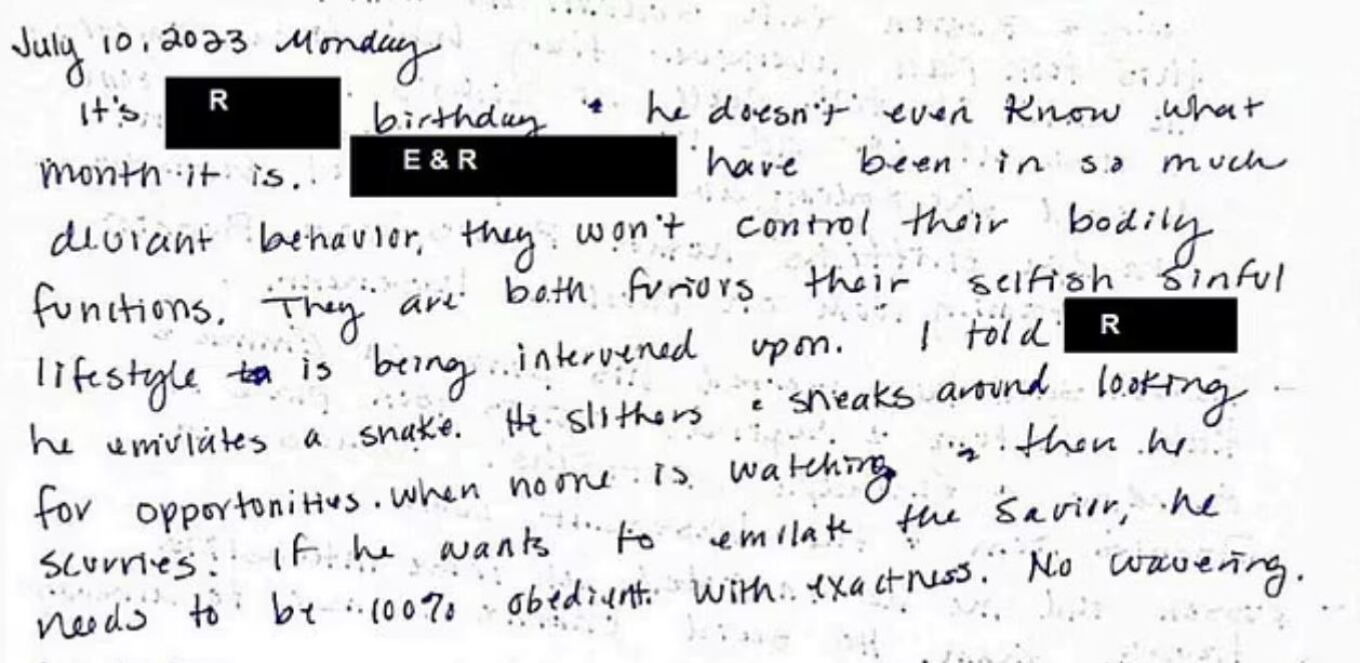 July 10, 2023 Monday
It's R birthday & he doesn't even know what
month it is. E & R have been in so much
deviant behavior, they won't control their bodily
functions. They are both furiors their selfish sinful
lifestyle is being intervened upon. I told R
he emulates a snake. He slithers & sneaks around looking
for opportunities when noone is watching & then he
scurries. If he wants to emulate the Savior, he
needs to be 100% obedient with exactness. No wavering.